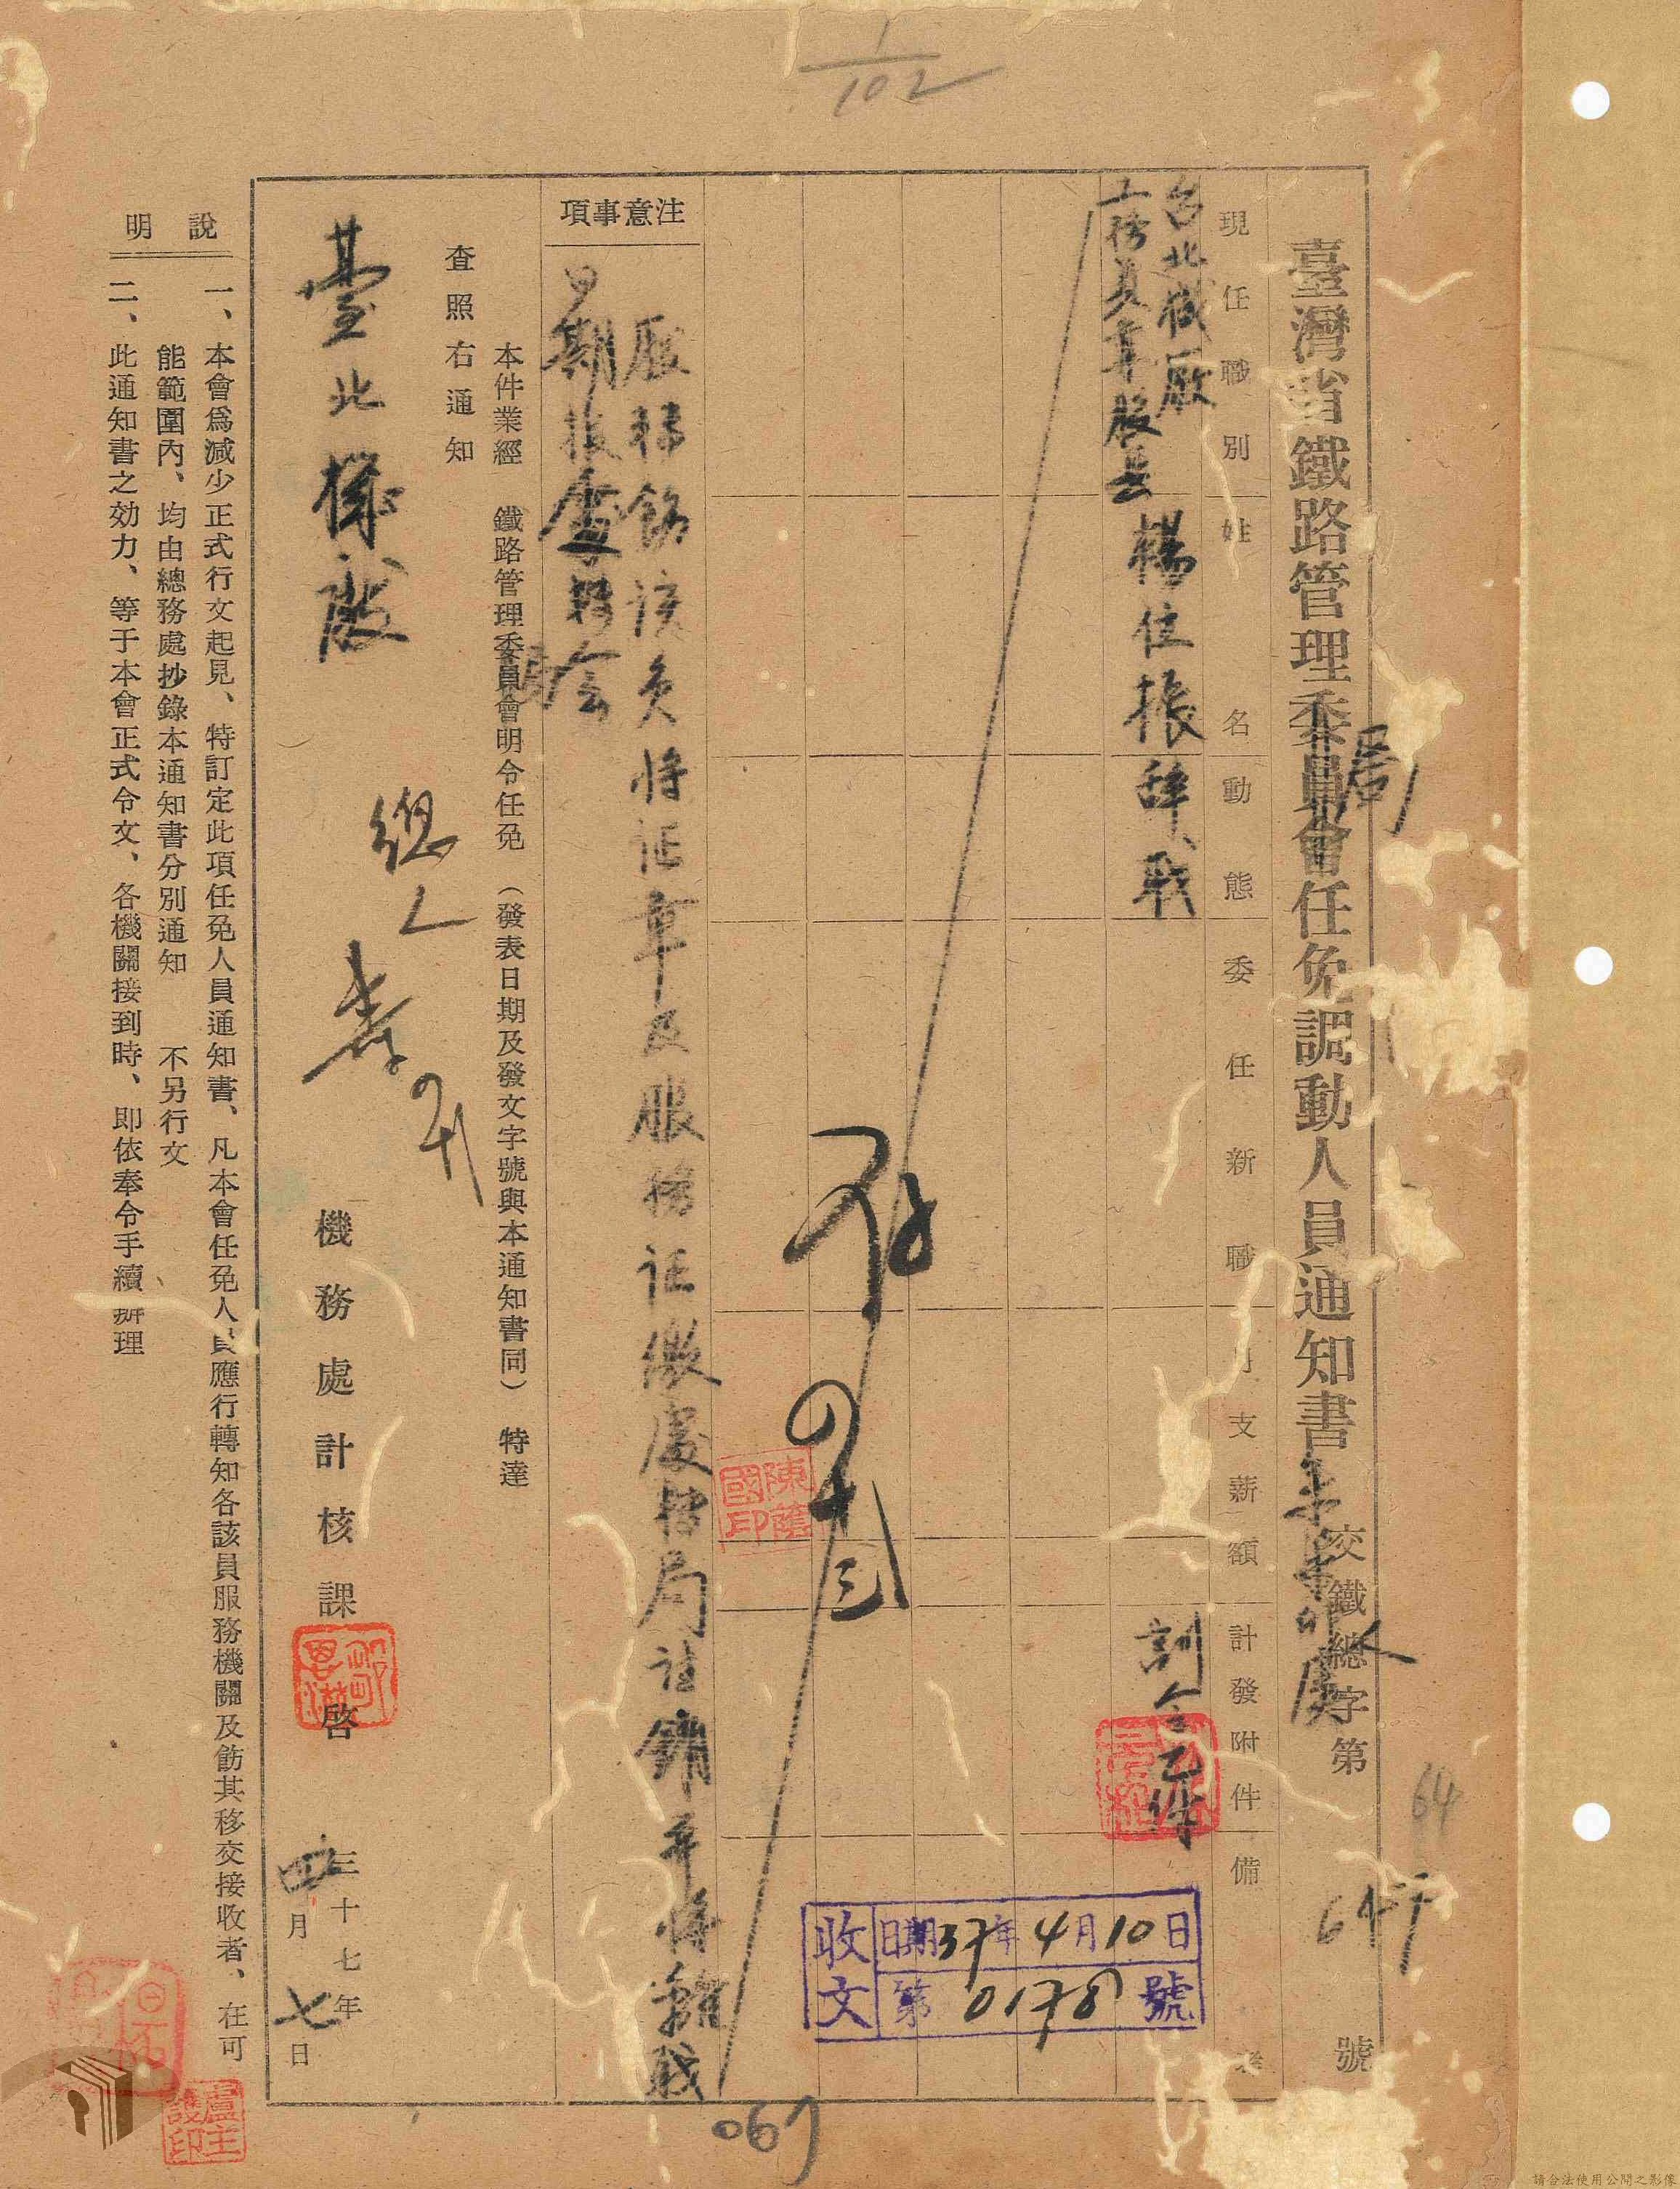 1/102
臺灣省鐵路管理委員會任免調動人員通知書
局
交鐵總字第
647
號
64
現任職別
姓名
動態
委任新職
月支薪額
計發附件
備考
台北機廠
工務員兼股長
楊位振
辭職
訓令乙件
收文
日期37年4月10日
第0178號
陳蔭國印
注意事項
服務飭該員將证章及服務证繳處轉局註銷并將離職
日期报處轉局
本件業經 鐵路管理委員會明令任免 (發表日期及發文字號與本通知書同) 特達
查照右通知
臺北機廠
總
機務處計核課 啓
三十七年
四月七日
說明
一、本會爲減少正式行文起見、特訂定此項任免人員通知書、凡本會任免人員應行轉知各該員服務機關及飭其移交接收者、在可
能範圍內、均由總務處抄錄本通知書分別通知 不另行文
二、此通知書之効力、等于本會正式令文、各機關接到時、即依奉令手續辦理
盧主護印
069
請合法使用公開之影像